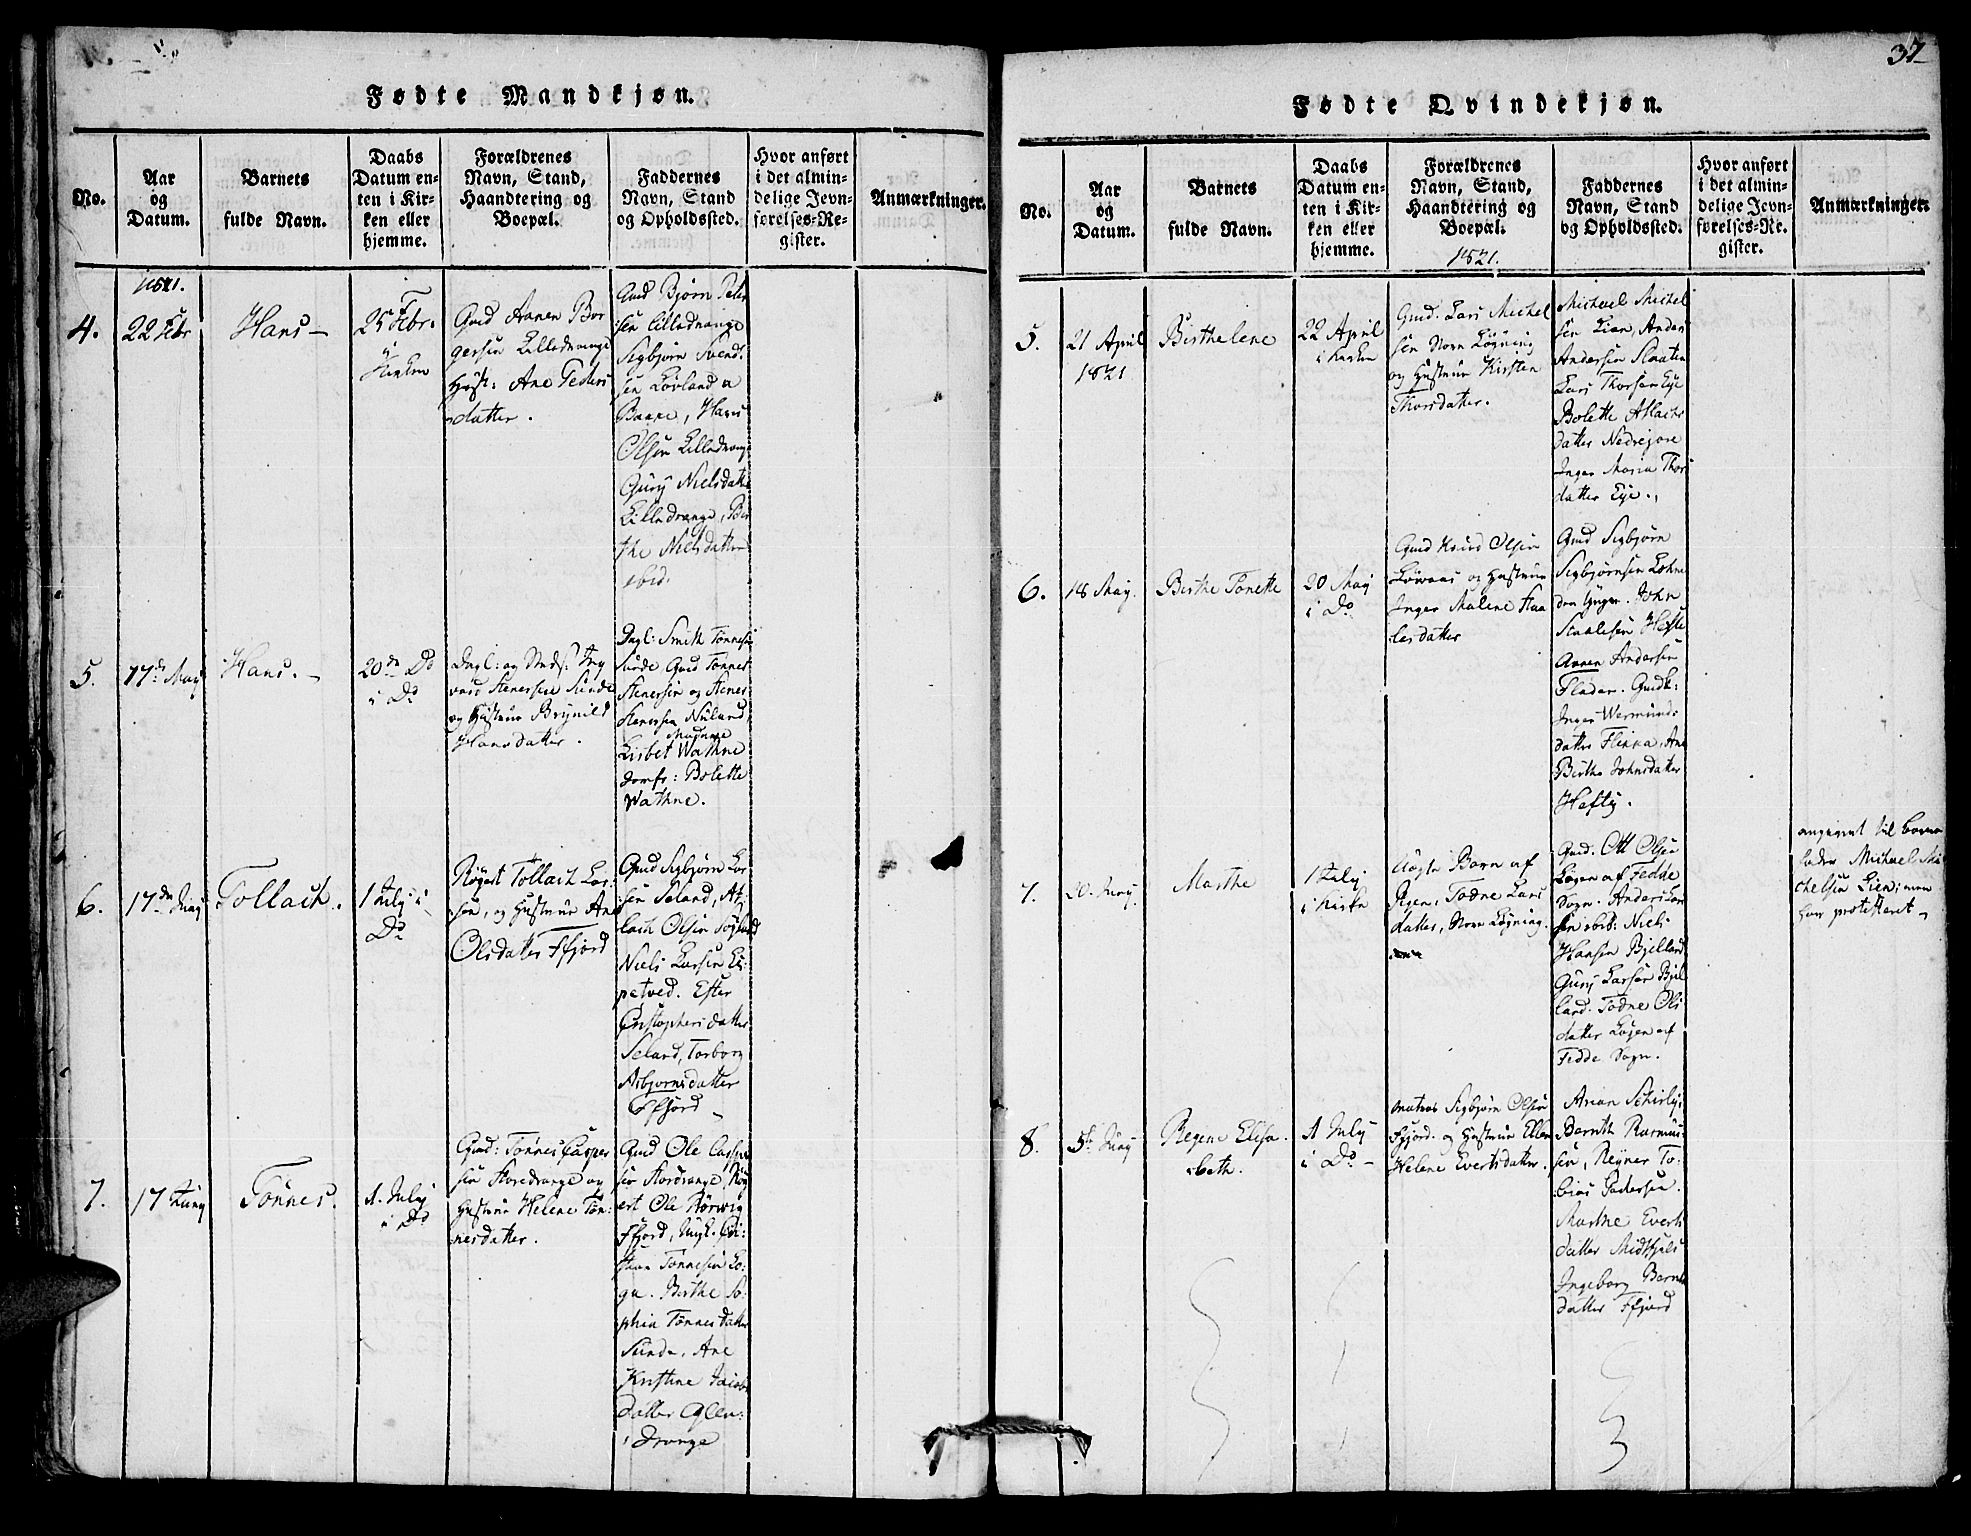 Fødte Mandkjøn.
No.
Aar
og
Datum.
Barnets
fulde Navn.
Daabs
Datum en-
ten i Kir-
ken eller
hjemme.
Forældrenes
Navn, Stand,
Haandtering og
Boepæl.
Faddernes
Navn, Stand
og Opholdssted.
Hvor anført
i det almin-
delige Jevn-
førelses-Re-
gister.
Anmærkninger.
1821.
4.
22 Febr
Hans
25 Febr.
i
Kirken
Gmd Aanen Bor
gersen Lilledrange
Hust: Ane Peders
datter.
Gmd Bjørn Peter
sen Lilledrange
Sigbjørn Svend-
sen Løvland
Hans
Olsen Lilledrange
Gurj Nielsdatter
Lilledrange, Bir
the Nielsdatter
ibid.
5.
17de May
Hans.
20de Do
i Do
Dagl: og
vard Stenersen Sunde
og Hustrue Brynild
Hansdatter.
Dagl: Smith Tønnesen
Sunde Gmd Tønnes
Stenersen og Stener
Stenersen Nuland,
Madame
Lisbet Wathne
Jomfr: Bolette
Wathne.
6.
17de Juny
Tollach.
1 July i
Do
Tollach Lar-
sen, og Hustrue Ane
Olsdatter Ffjord
Gmd Sigbjørn Lar
sen Seland, At-
lach Olsen
Niels Larsen Es-
petved. Ester
Cristophersdatter
Seland, Torborg
Asbjørnsdatter
Ffjord
7.
17 Juny
Tønnes.
1. July
i Do
Gmd: Tønnes Casper
sen Storedrange og
Hustrue Helene Tøn-
nesdatter.
Gmd Ole Casper
sen Stordrange,
Ole Rørwig
Ffjord, Ungk.
Tønnesen Lo-
ga. Birthe So-
phia Tønnesdatter
Sunde, Ane
Kristine Jacobs
datter
Drange
37
Fødte Qvindekjøn.
No.
Aar
og
Datum.
Barnets
fulde Navn.
Daabs
Datum en-
ten i Kir-
ken eller
hjemme.
Forældrenes
Navn, Stand,
Haandtering og
Boepæl.
1821.
Faddernes
Navn, Stand
og Opholdssted.
Hvor anført
i det almin-
delige Jevn-
førelses-Re-
gister.
Anmærkninger.
5.
21 April
1821
Birthelene
22 April
i Kirken
Gmd. Lars Michel
sen Løgning
og Hustrue Kirsten
Thorsdatter.
Michael Michel
sen Lien, Anders
Andersen Slaaten
Lars Thorsen Eye
Bolette Atlachs
datter Nedrejore
Inger Maria Thors
datter Eye.
6.
18 May.
Birthe Tonette
20 May
i Do
Gmd Knud Olsen
Løwaas og Hustrue
Inger Malene Staa
lesdatter
Gmd Sigbjørn
Sigbjørnsen Lohne
den Yngre. John
Staalesen Hefte
Aanen Andersen
Fladen. Gmdk:
Inger Wermund-
datter Flikka, Ane
Birthe Johnsdatter
Hefty.
7.
20. Juny.
Marthe
1 July
i Kirke
Uægte Barn af
Pigen, Todne Lars
datter, Løgning.
Gmd: Ott Olsen
Løgen af Fedde
Sogn. Anders Lar
sen ibid: Niels
Hansen Bjelland
Gurj Larsen Bjel
land. Todne Ols
datter Løgen af
Fedde Sogn.
angivet til barne
fader Michael Mi
chelsen Lien; men
har protesteret
8.
5te Juny
Regine Elisa
beth.
1 July
i Do
Matros Sigbjørn Olsen
Ffjord. og Hustrue Ellen
Helene Evertsdatter.
Arian
Bernth Rasmus-
sen, Reyner To-
bias Pedersen.
Marthe Everts
datter Midthjels
Ingeborg Bernt
datter Ffjord